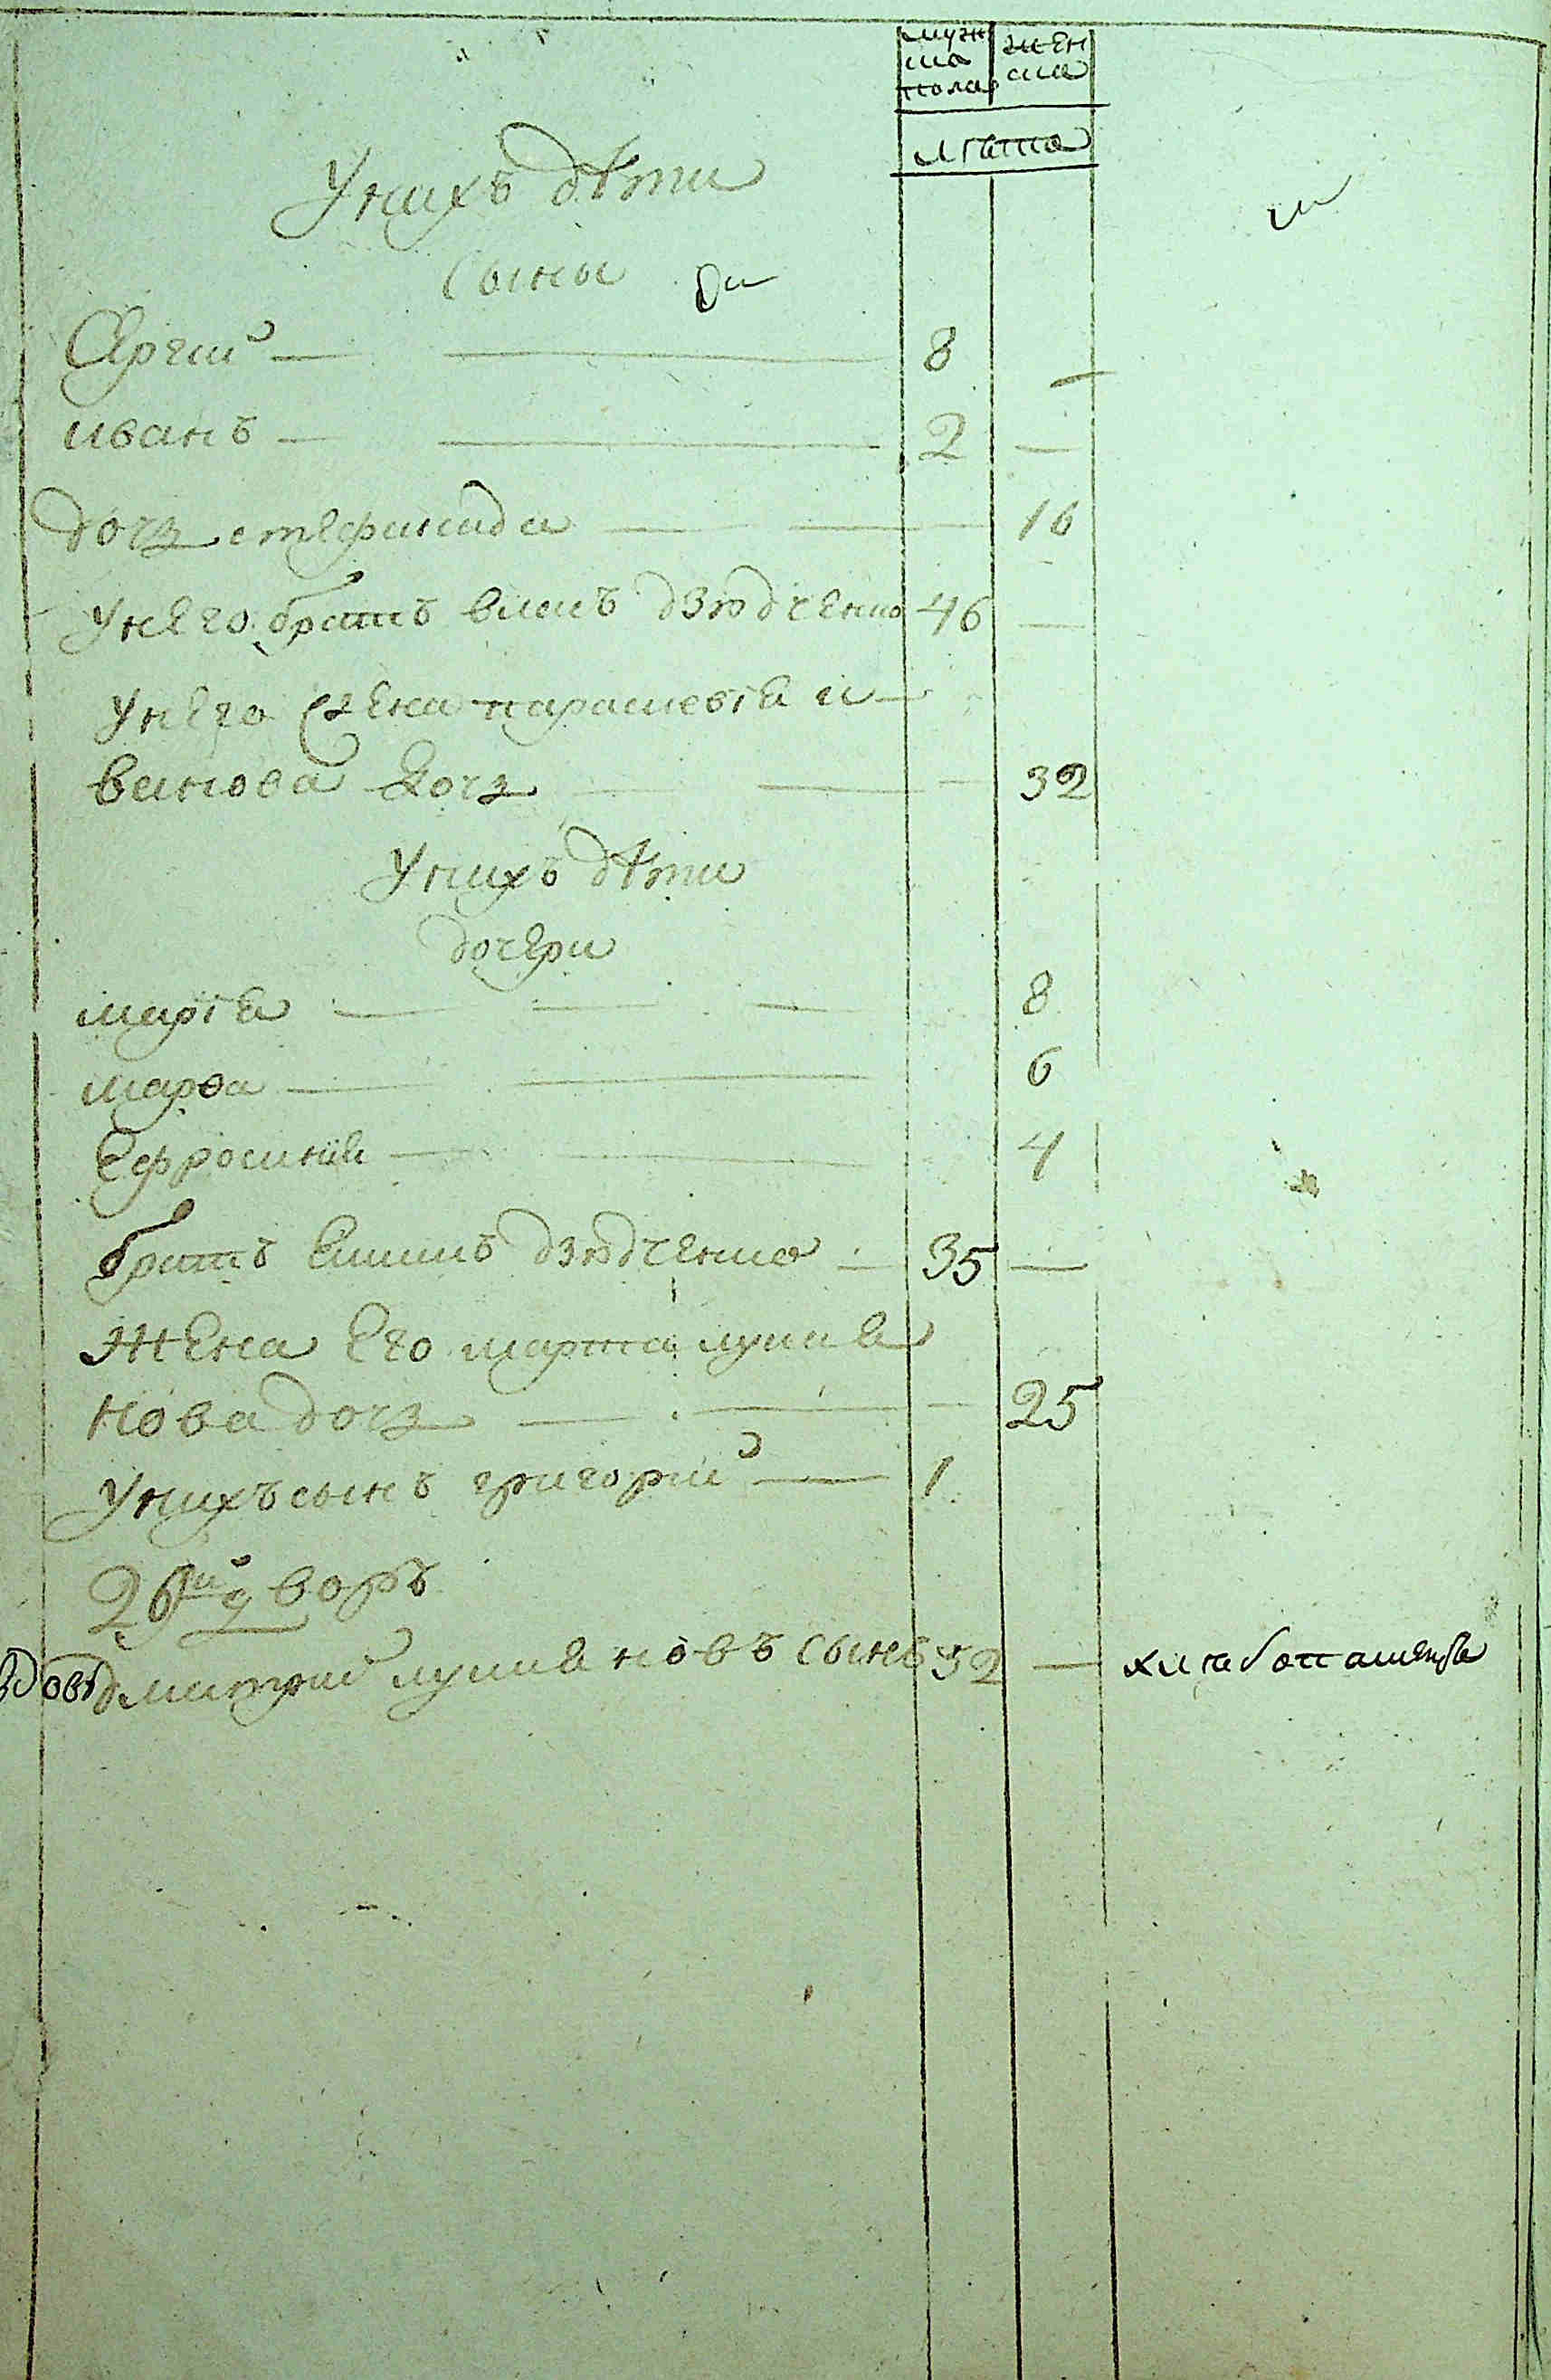 муж ска пола
жен ска
лѣта
У нихъ дѣти
сыны
Сергий — 8
иванъ — 2 —
дочь стефанида — 16
У него братъ дзюдченко 46 —
У него жена параскевiя и
ванова дочь — 32
У нихъ дѣти
дочери
марiя — 8
марѳа — 6
Ефросинiя — 4
братъ дзюдченко — 35 —
Жена Его марта лукiя
нова дочь — 25
У нихъ сынъ григорий — 1
26й дворъ
вдовъ дмитрий лукiяновъ сынъ 52 — хлебопашецъ